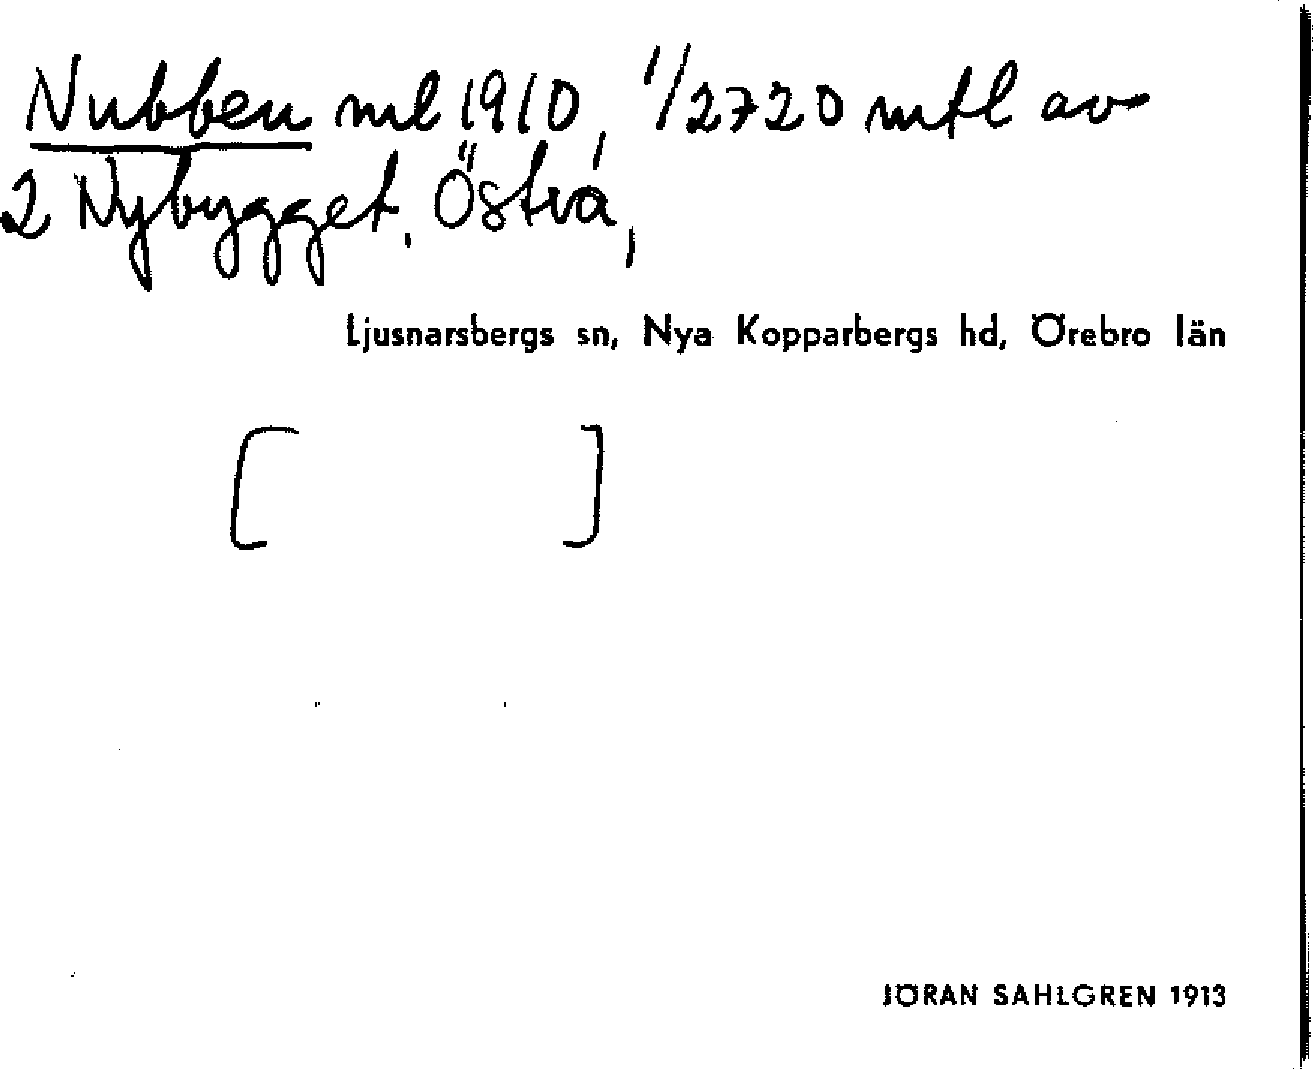 Nubben ml 1910, 1/2720 mtl av
2 Nybygget, Östrå,
Ljusnarsbergs sn, Nya Kopparbergs hd, Örebro län
[ ]
JÖRAN SAHLGREN 1913